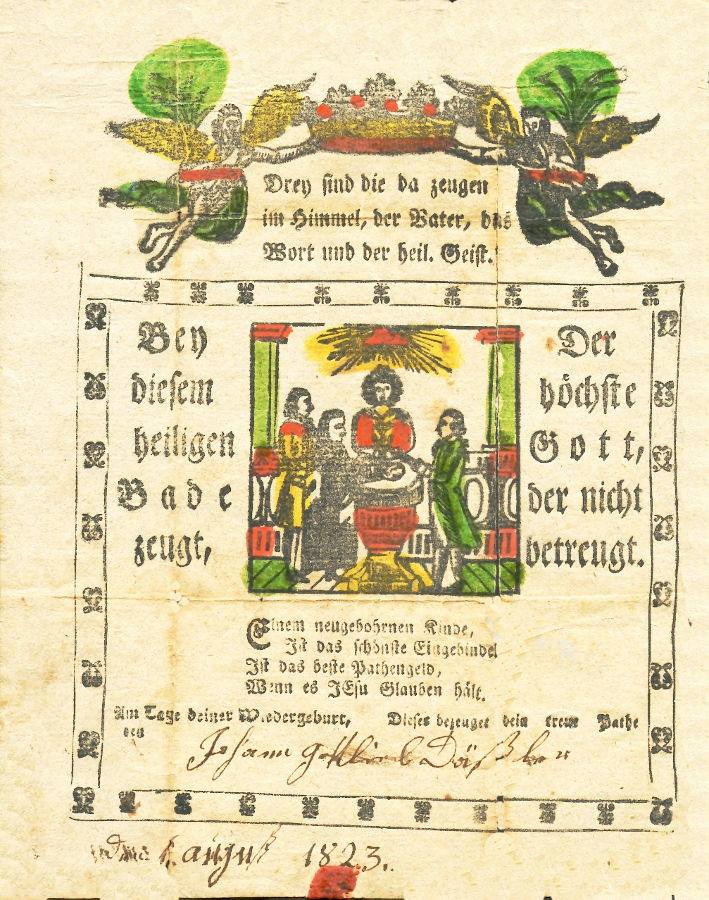 Drey sind die da zeugen
im Himmel, der Vater, das
Wort und der heil. Geist.
Bey
diesem
heiligen
Bade
zeugt,
Der
höchste
Gott,
der nicht
betreugt.
Einem neugebohrnen Kinde,
Ist das schönste Eingebindel
Ist das beste Pathengeld,
Wenn es JEsu Glauben hält.
Am Tage deiner Wiedergeburt, Dieses bezeuget dein treuer Pathe
den
Johann Gottlieb
august 1823.